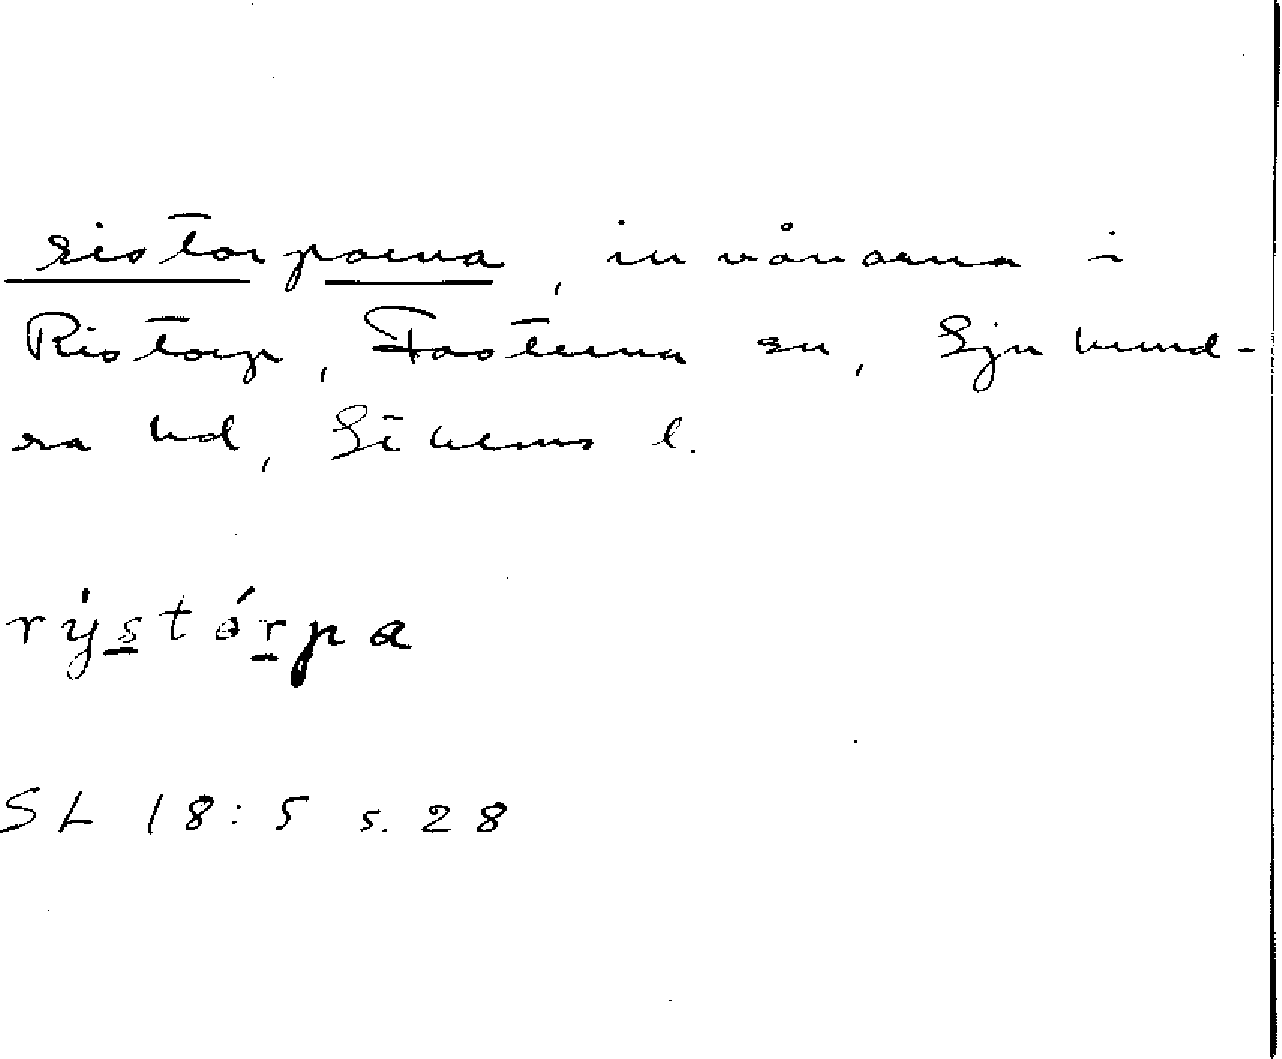 ristorparna, invånarna i
Ristorp, Fasterna sn, Sjuhund-
ra hd, Sthlms l.
rýstórpa
SL 18:5 s. 28